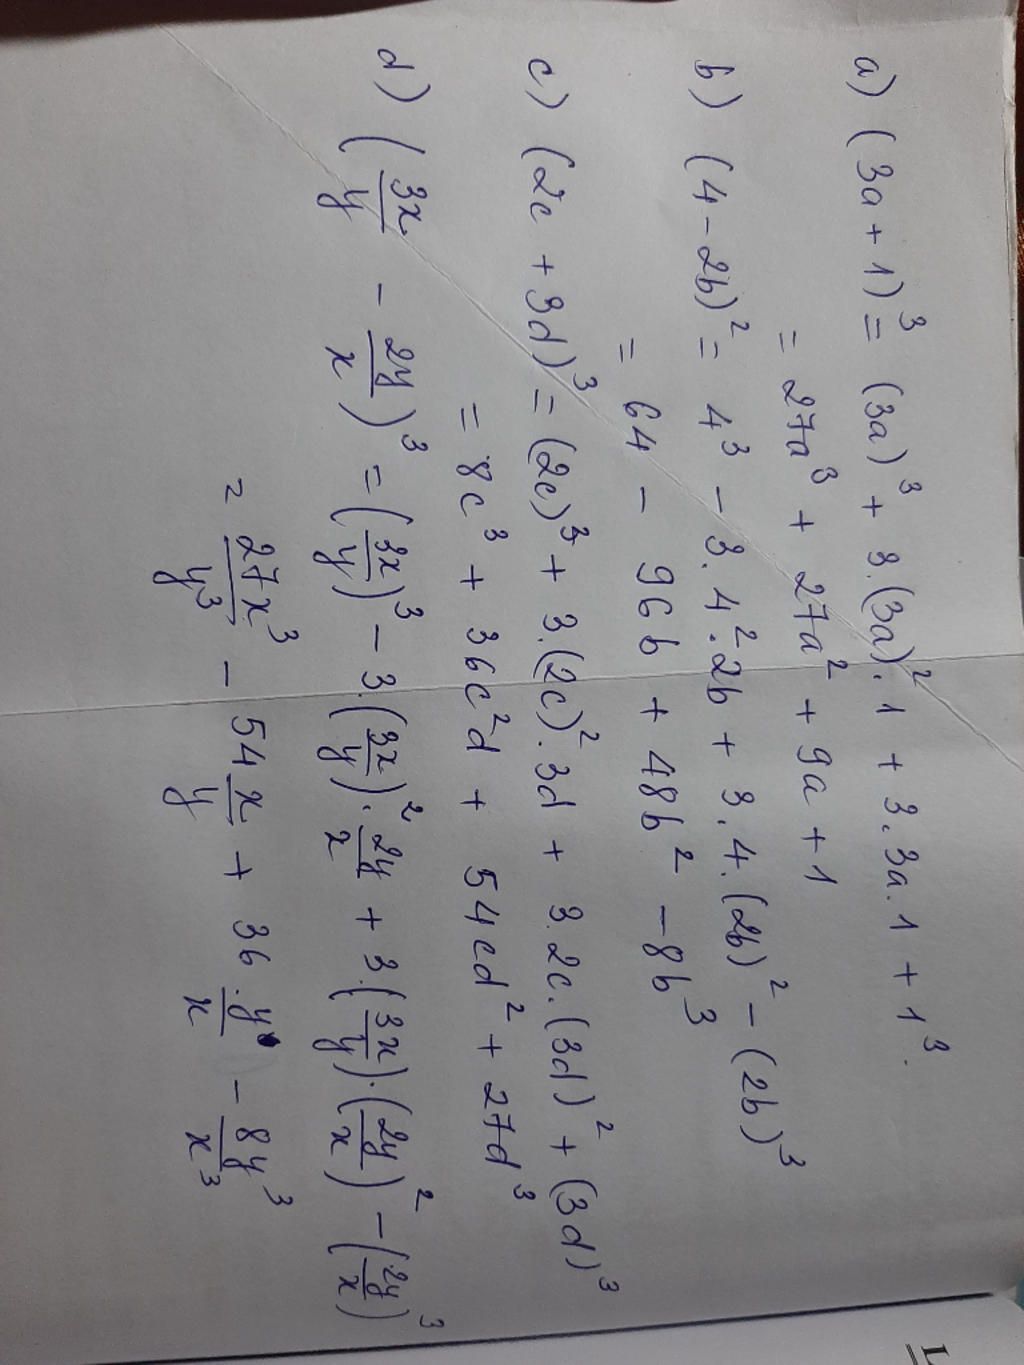 a) (3a + 1)³ = (3a)³ + 3.(3a)².1 + 3.3a.1 + 1³.
= 27a³ + 27a² + 9a + 1
b) (4 - 2b)² = 4³ - 3.4².2b + 3.4.(2b)² - (2b)³
= 64 - 96b + 48b² - 8b³
c) (2c + 3d)³ = (2c)³ + 3.(2c)².3d + 3.2c.(3d)² + (3d)³
= 8c³ + 36c²d + 54cd² + 27d³
d) (3x/y - 2y/x)³ = (3x/y)³ - 3.(3x/y)².2y/x + 3.(3x/y).(2y/x)² - (2y/x)³
= 27x³/y³ - 54x/y + 36.y/x - 8y³/x³
L